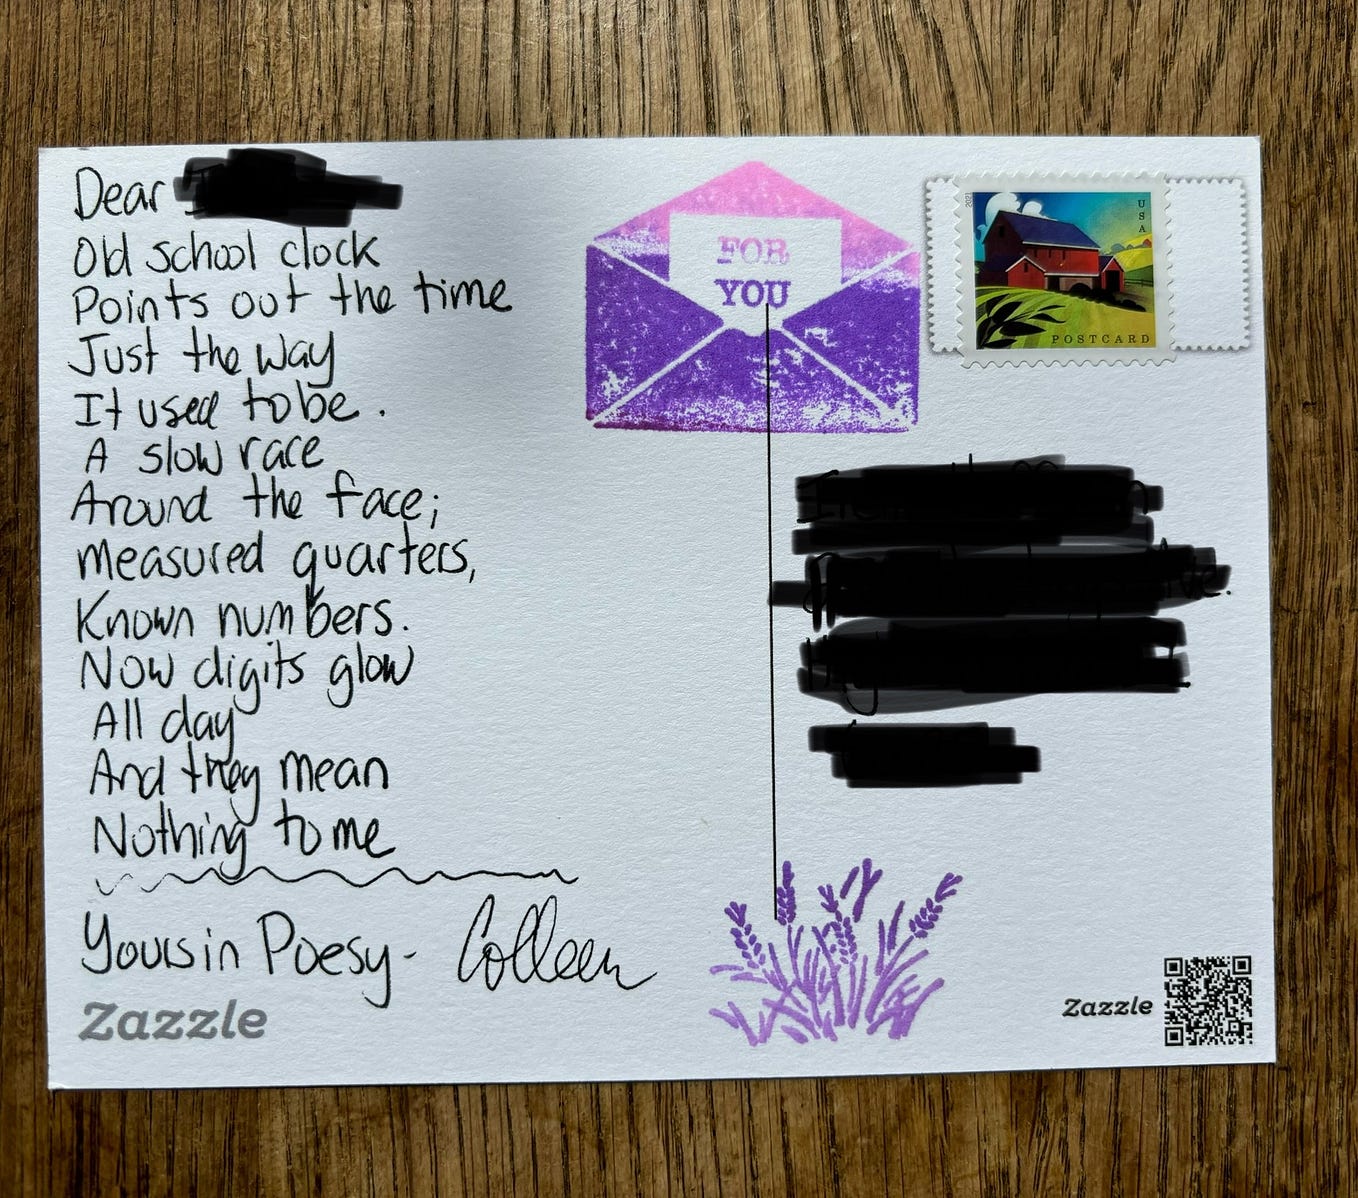 Dear
Old school clock
Points out the time
Just the way
It used to be.
A slow race
Around the face;
measured quarters,
Known numbers.
Now digits glow
All day
And they mean
Nothing to me
Yours in Poesy - Colleen
Zazzle
FOR
YOU
USA
POSTCARD
Zazzle